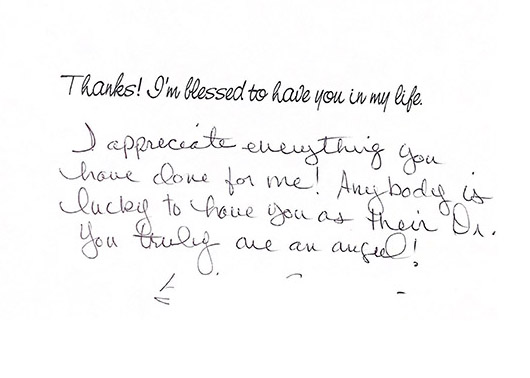 Thanks! I'm blessed to have you in my life.
I appreciate everything you
have done for me! Anybody is
lucky to have you as their Dr.
You truly are an angel!